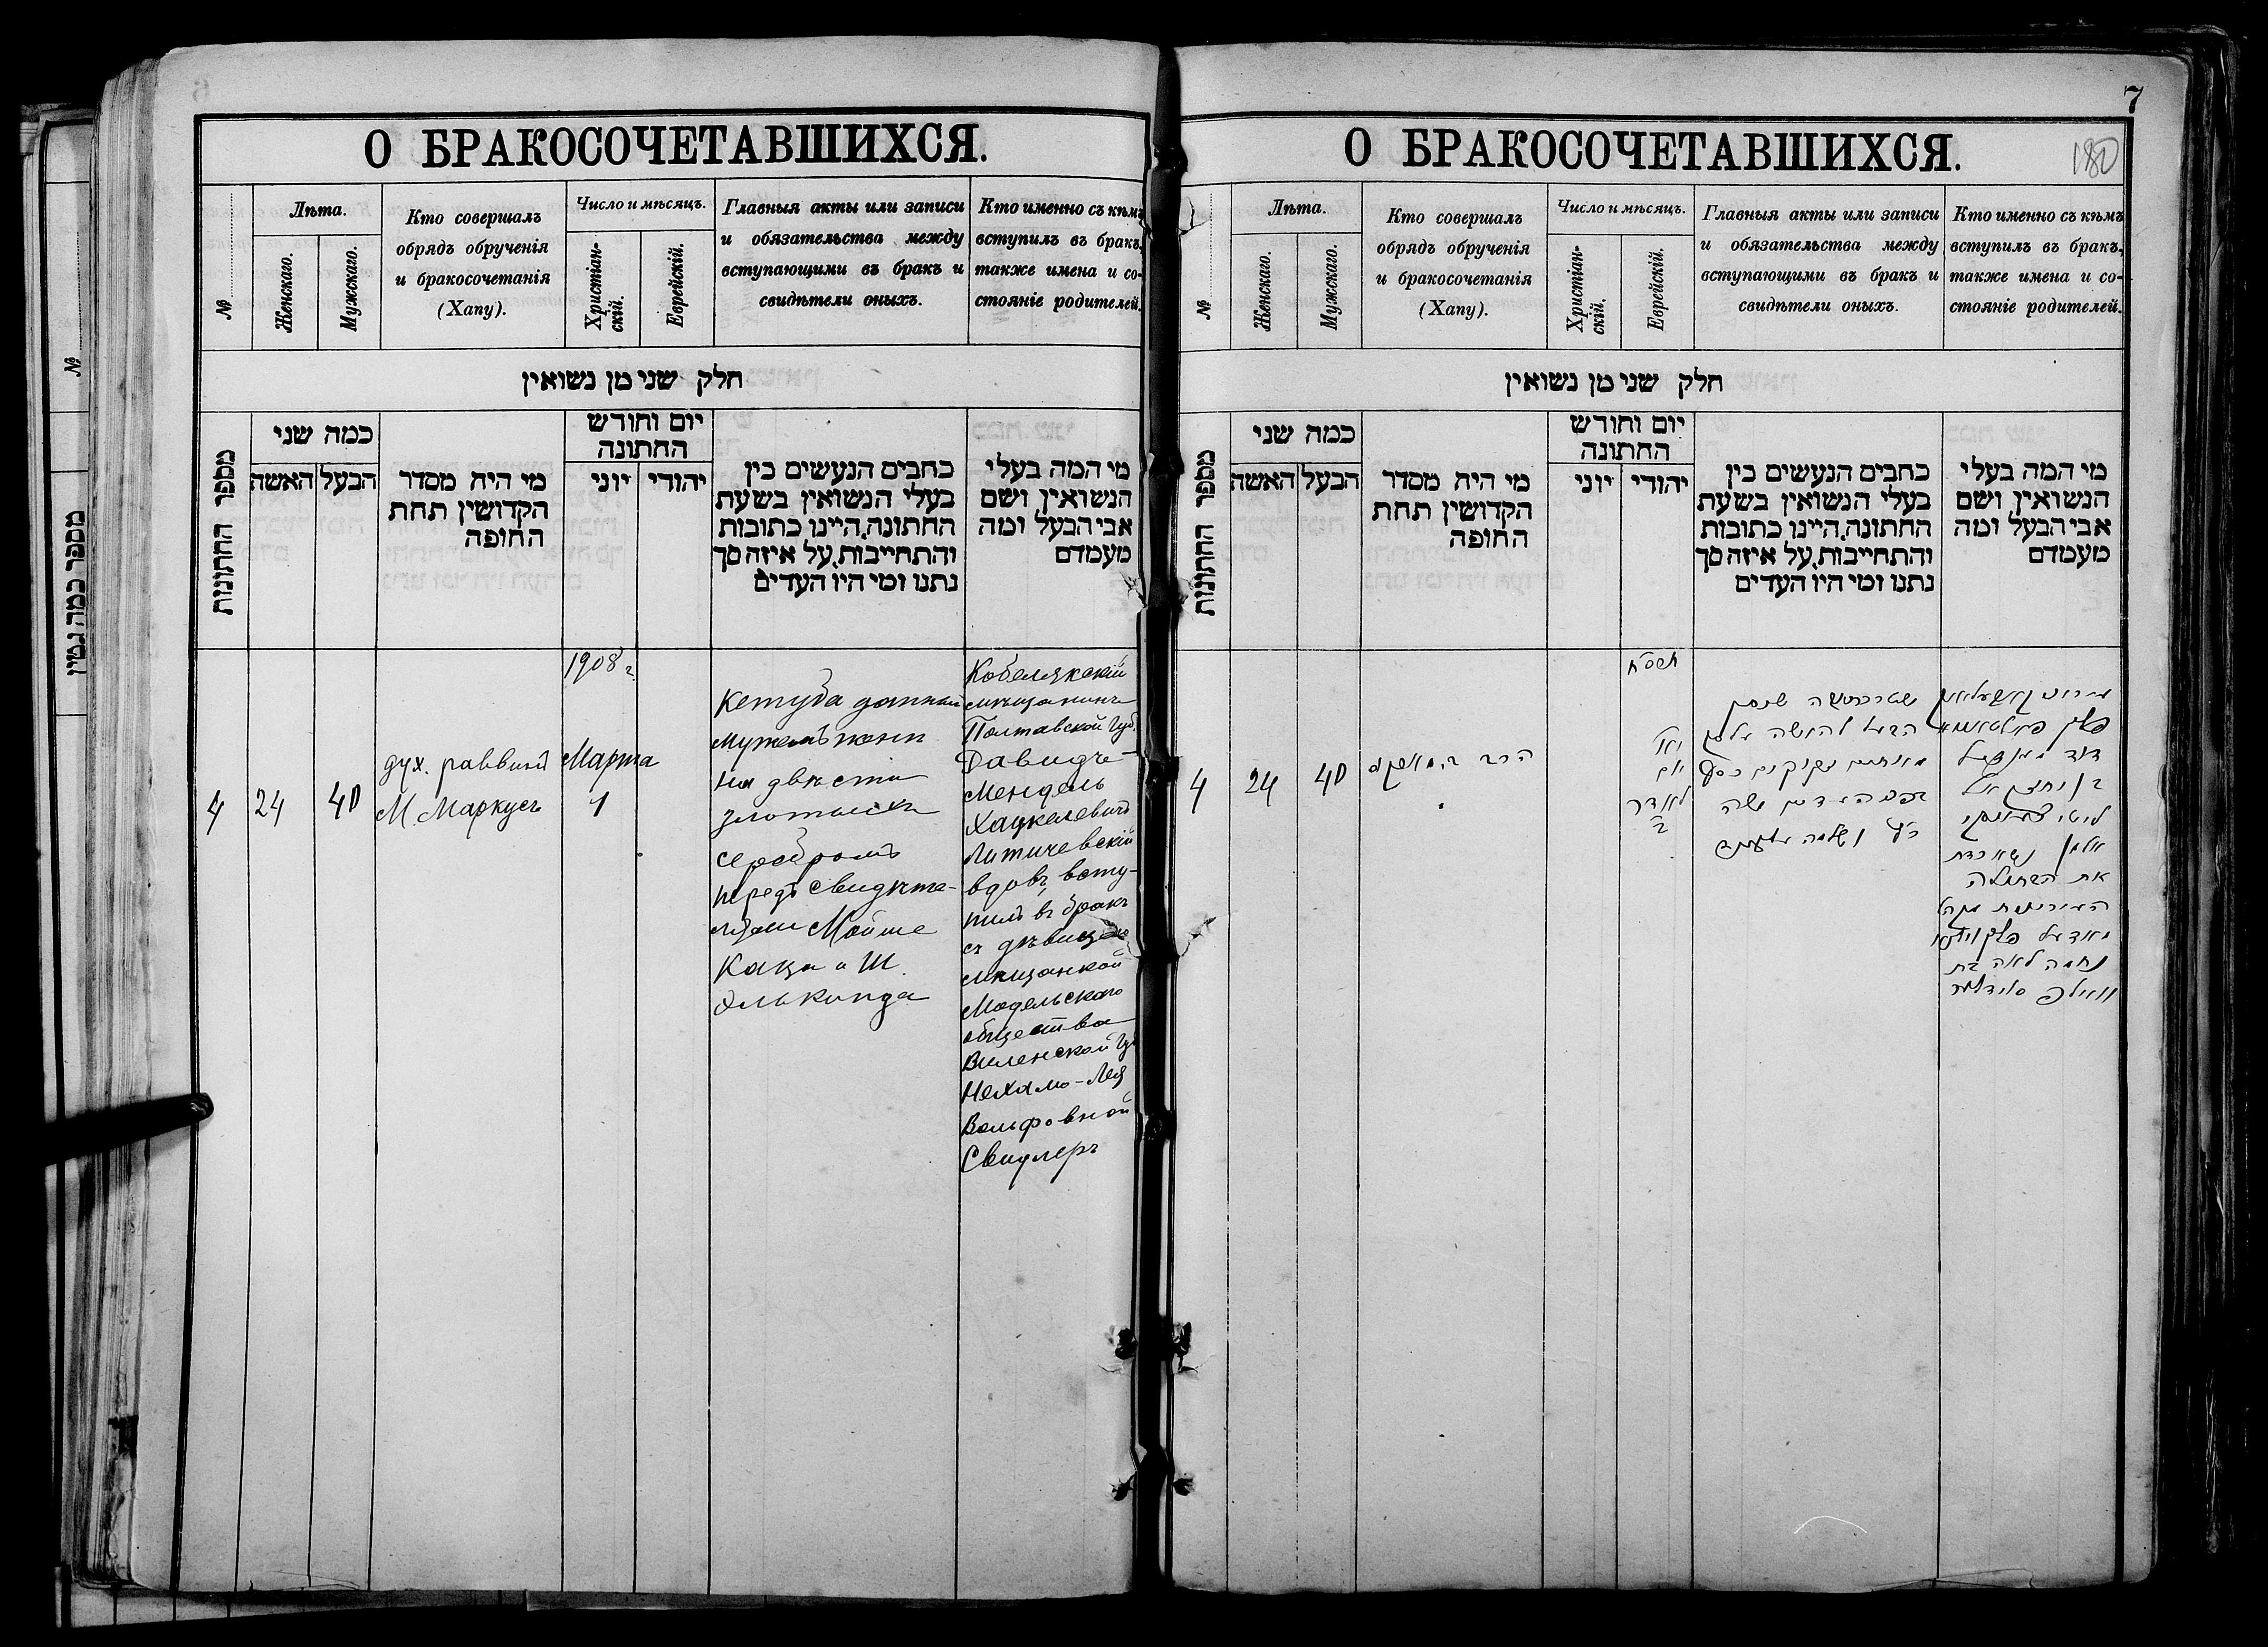 О БРАКОСОЧЕТАВШИХСЯ.
№
Лѣта.
Женскаго.
Мужскаго.
Кто совершалъ
обрядъ обрученія
и бракосочетанія
(Хапу).
Число и мѣсяцъ.
Христіан-
скій.
Еврейскій.
Главныя акты или записи
и обязательства между
вступающими въ бракъ и
свидѣтели оныхъ.
Кто именно съ кѣмъ
вступилъ въ бракъ,
также имена и со-
стояніе родителей.
חלק שני מן נשואין
מספר החתונות
כמה שני
האשה
הבעל
מי היה מסדר
הקדושין תחת
החופה
יום וחודש
החתונה
יוני
יהודי
כתבים הנעשים בין
בעלי הנשואין בשעת
החתונה, היינו כתובות
והתחייבות, על איזה סך
נתנו ומי היו העדים
מי המה בעלי
הנשואין, ושם
אבי הבעל ומה
מעמדם
4
24
40
дух. раввинъ
М. Маркусъ
1908 г.
Марта
1
Кетуба данный
мужемъ жене
на двѣсти
злотыхъ
серебромъ
передъ свидѣте-
лями Мойше
Каца и Ш.
Элькинда
Кобелякскій
мѣщанинъ
Полтавской Губ.
Давидъ-
Мендель
Хацкелевичъ
Литичевскій
вдовъ всту-
пилъ въ бракъ
съ дѣвицею
мѣщанкой
Модельскаго
общества
Виленской Губ.
Нехамо-Лея
Вольфовной
Свидлеръ
7
180
О БРАКОСОЧЕТАВШИХСЯ.
№
Лѣта.
Женскаго.
Мужскаго.
Кто совершалъ
обрядъ обрученія
и бракосочетанія
(Хапу).
Число и мѣсяцъ.
Христіан-
скій.
Еврейскій.
Главныя акты или записи
и обязательства между
вступающими въ бракъ и
свидѣтели оныхъ.
Кто именно съ кѣмъ
вступилъ въ бракъ,
также имена и со-
стояніе родителей.
חלק שני מן נשואין
מספר החתונות
כמה שני
האשה
הבעל
מי היה מסדר
הקדושין תחת
החופה
יום וחודש
החתונה
יוני
יהודי
כתבים הנעשים בין
בעלי הנשואין בשעת
החתונה, היינו כתובות
והתחייבות, על איזה סך
נתנו ומי היו העדים
מי המה בעלי
הנשואין, ושם
אבי הבעל ומה
מעמדם
4
24
40
הרב מ. מארקוס
תרס״ח
לאדר
הבעל להאשה
מאתים זקוקים כסף
העדים משה
כ״ץ ושלמה
פלך פאלטאווא
דוד מענדיל
בן יחזקאל
אלמן נשא
את הבתולה
פלך ווילנא
נחמה לאה בת
וואלף
№
מספר כמה גטין